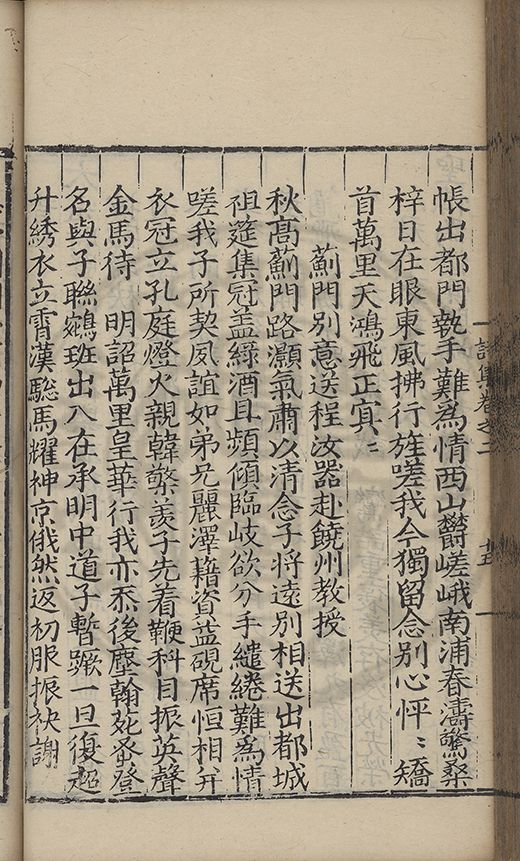 帳出都門執手難爲情西山欝嵯峨南浦春濤驚桑
梓日在眼東風拂行旌嗟我今獨留念別心怦〻矯
首萬里天鴻飛正寘〻
薊門別意送程汝器赴饒州教授
秋髙薊門路灝氣肅以清念子將遠別相送出都城
祖筵集冠盖綠酒且頻傾臨岐欲分手繾綣難爲情
嗟我子所契夙誼如弟兄麗澤藉資益硯席恒相并
衣冠立孔庭燈火親韓檠羨子先着鞭科目振英聲
金馬待 明詔萬里皇華行我亦忝後塵翰苑蚤登
名與子聯鵷班出入在承明中道子暫蹶一旦復超
升綉衣立霄漢驄馬耀神京俄然返初服振袂謝
詩集卷之二
十五